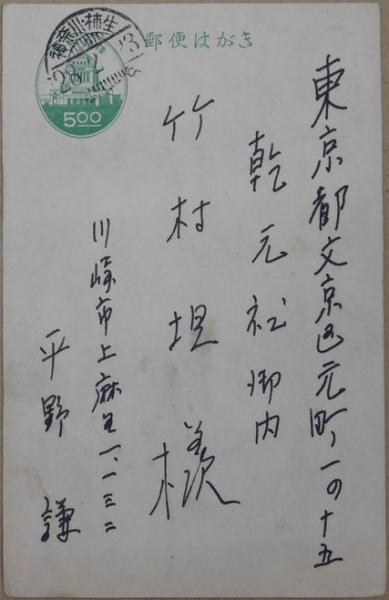 郵便はがき
神奈川・柿生
5.00
東京都文京区元町一の十五
乾元社御内
竹村坦様
川崎市上麻生一、一三二
平野謙